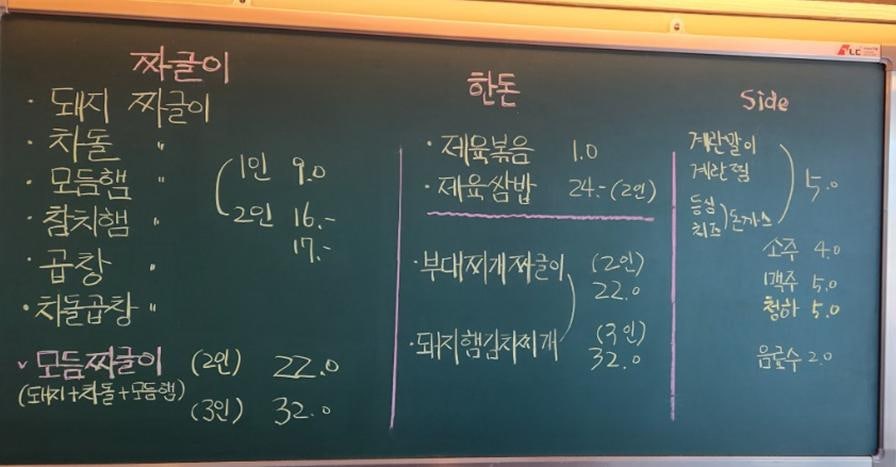 짜글이
· 돼지 짜글이
· 차돌 〃
· 모듬햄 〃
· 참치햄 〃
· 곱창 〃
· 차돌곱창 〃
1인 9.0
2인 16.-
17.-
v 모듬짜글이 (2인) 22.0
(돼지+차돌+모듬햄)
(3인) 32.0
한돈
· 제육볶음 1.0
· 제육쌈밥 24.- (2인)
· 부대찌개짜글이 (2인)
22.0
· 돼지햄김치찌개 (3인)
32.0
Side
계란말이
계란찜
등심
치즈
돈가스
5.0
소주 4.0
맥주 5.0
청하 5.0
음료수 2.0